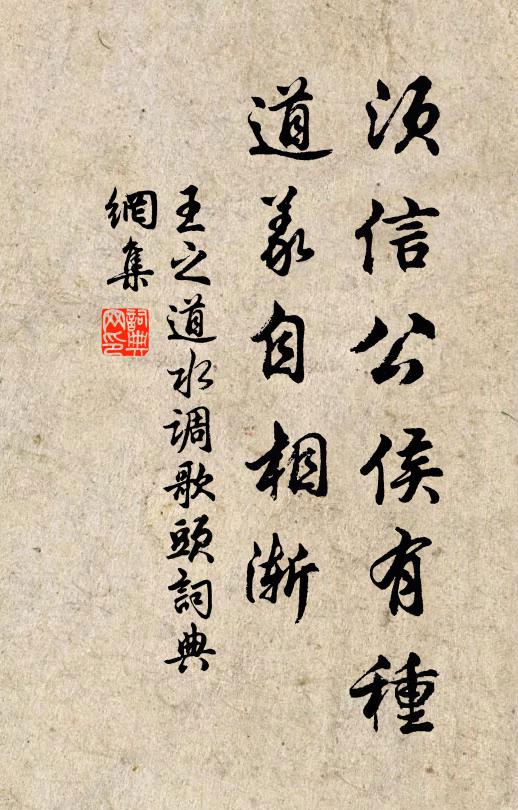 須信公侯有種
道義自相漸
王之道水调歌頭詞典
網集
詞典
网印